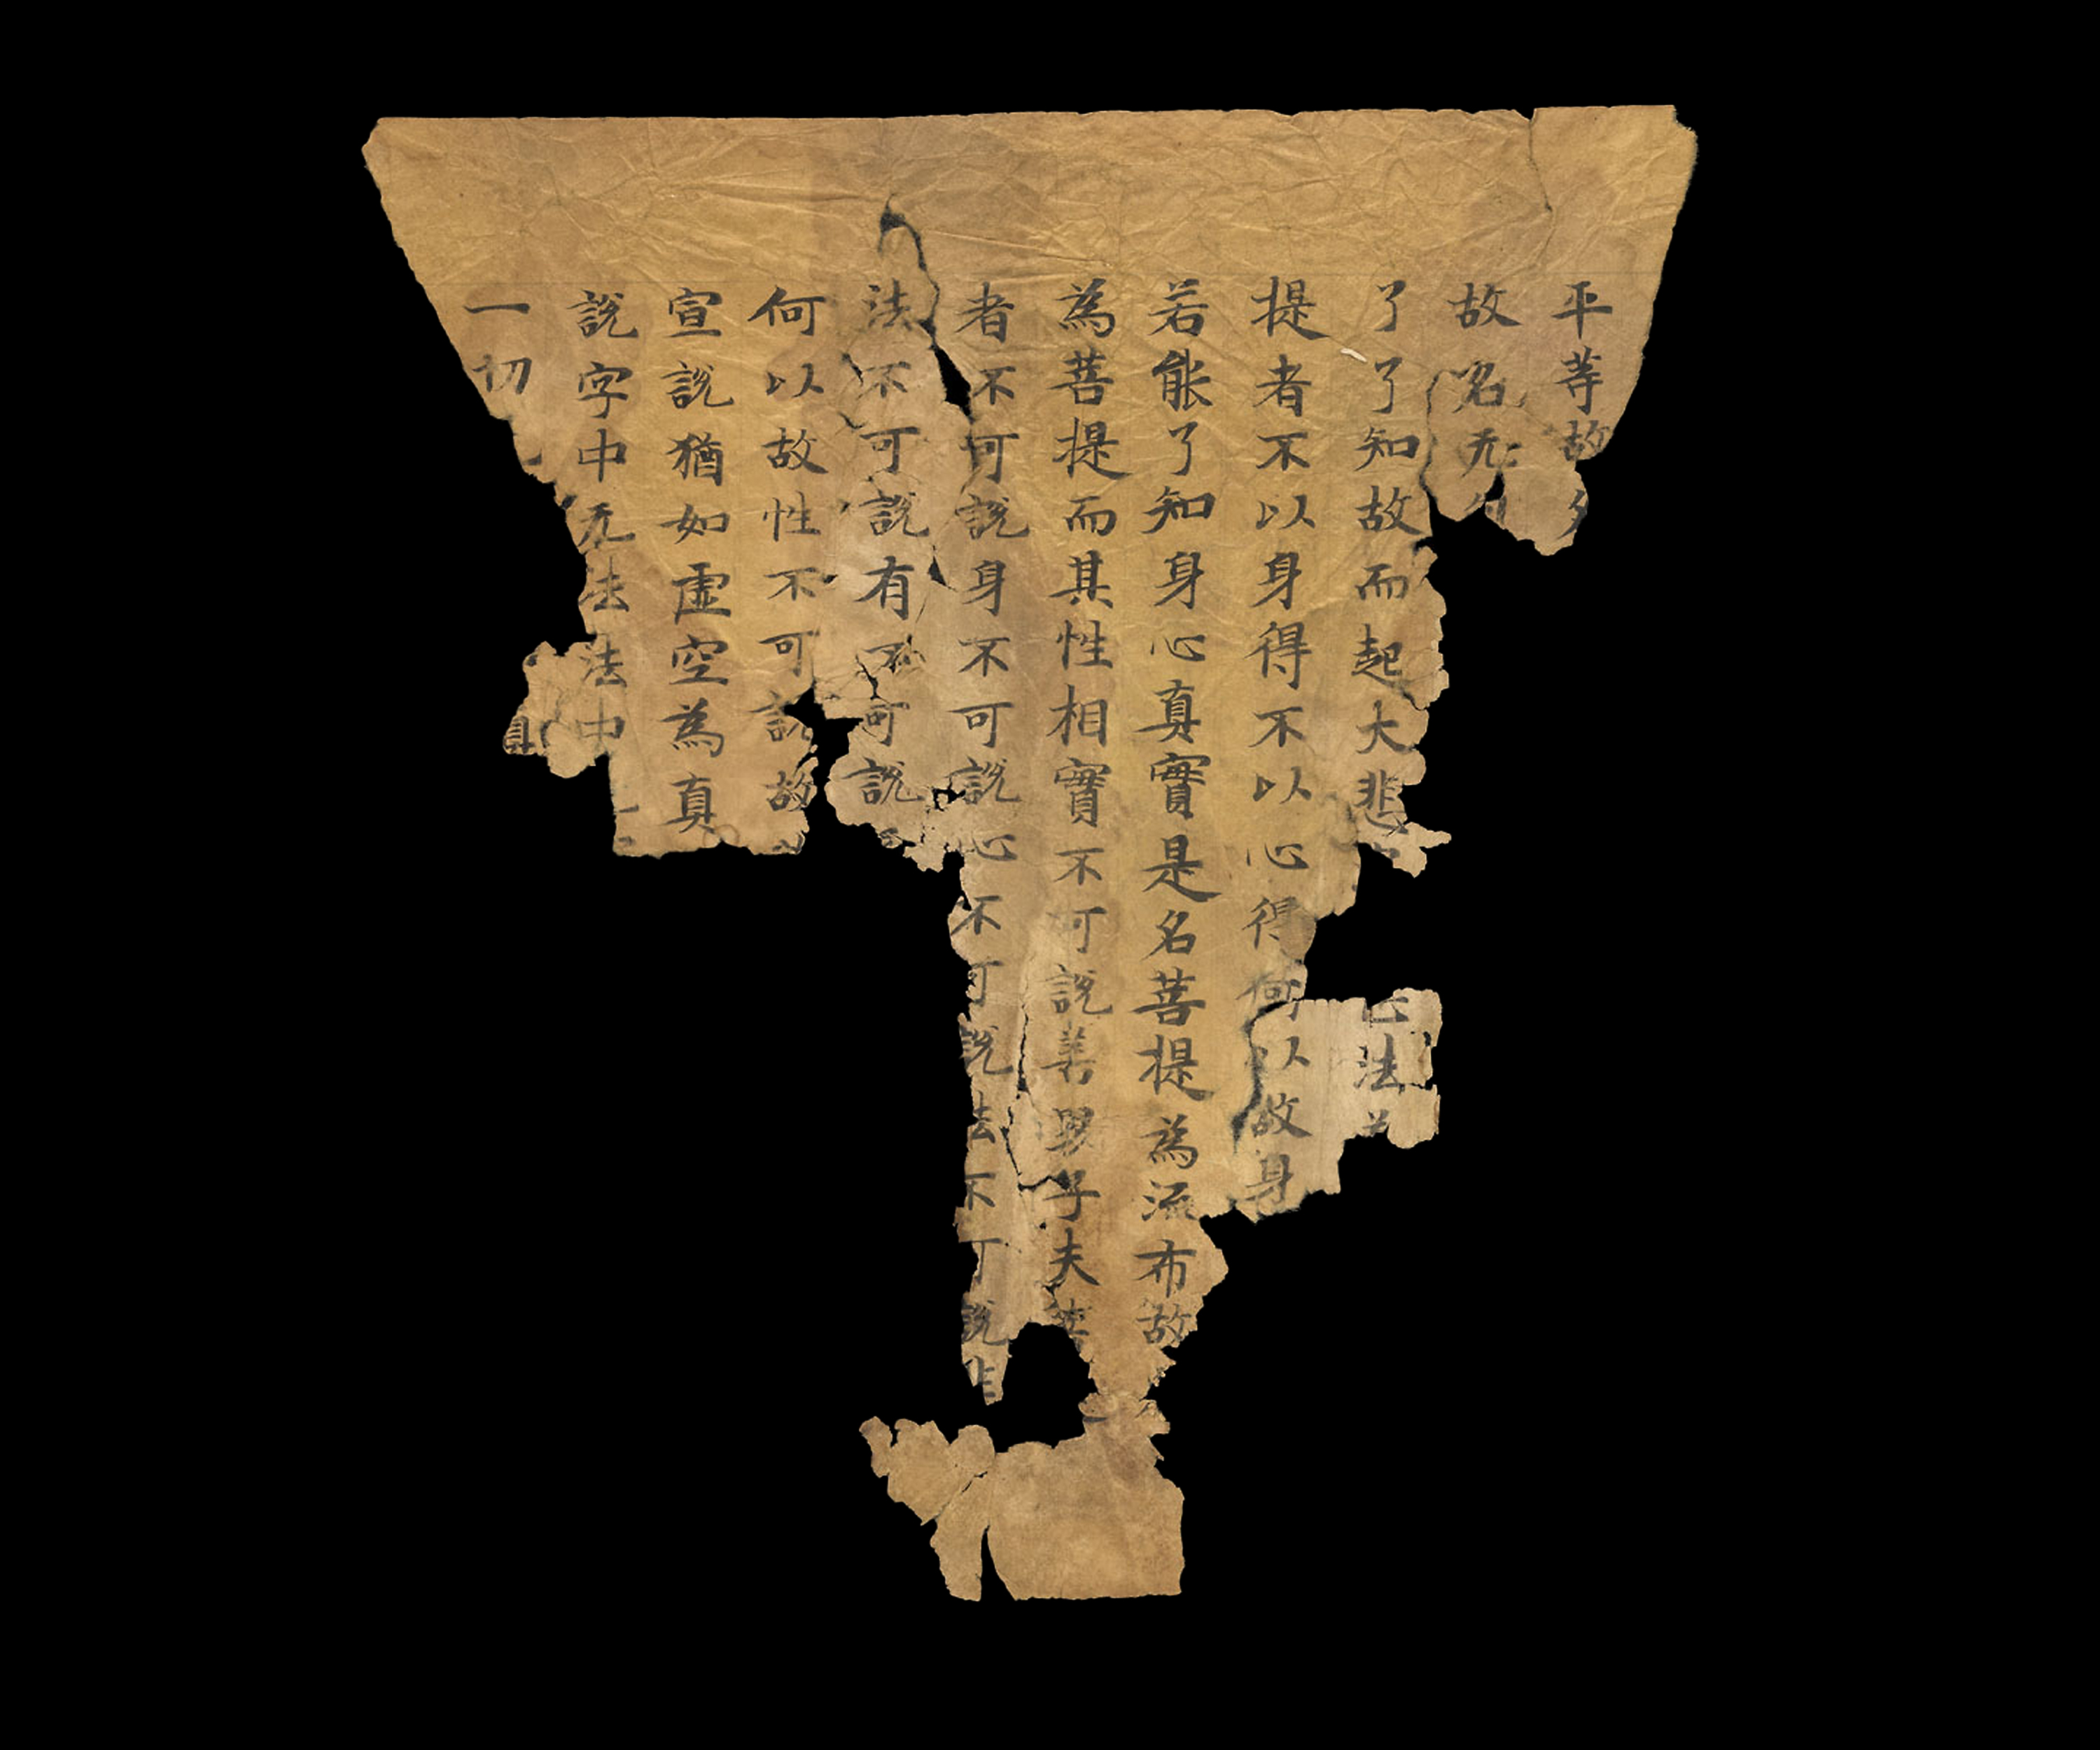 平等故
故名无
了了知故而起大悲心法
提者不以身得不以心得何以故身
若能了知身心真實是名菩提為流布故
為菩提而其性相實不可說善男子夫菩
者不可說身不可說心不可說法不可說非
法不可說有不可說
何以故性不可說故
宣說猶如虛空為真
說字中无法法中
一切